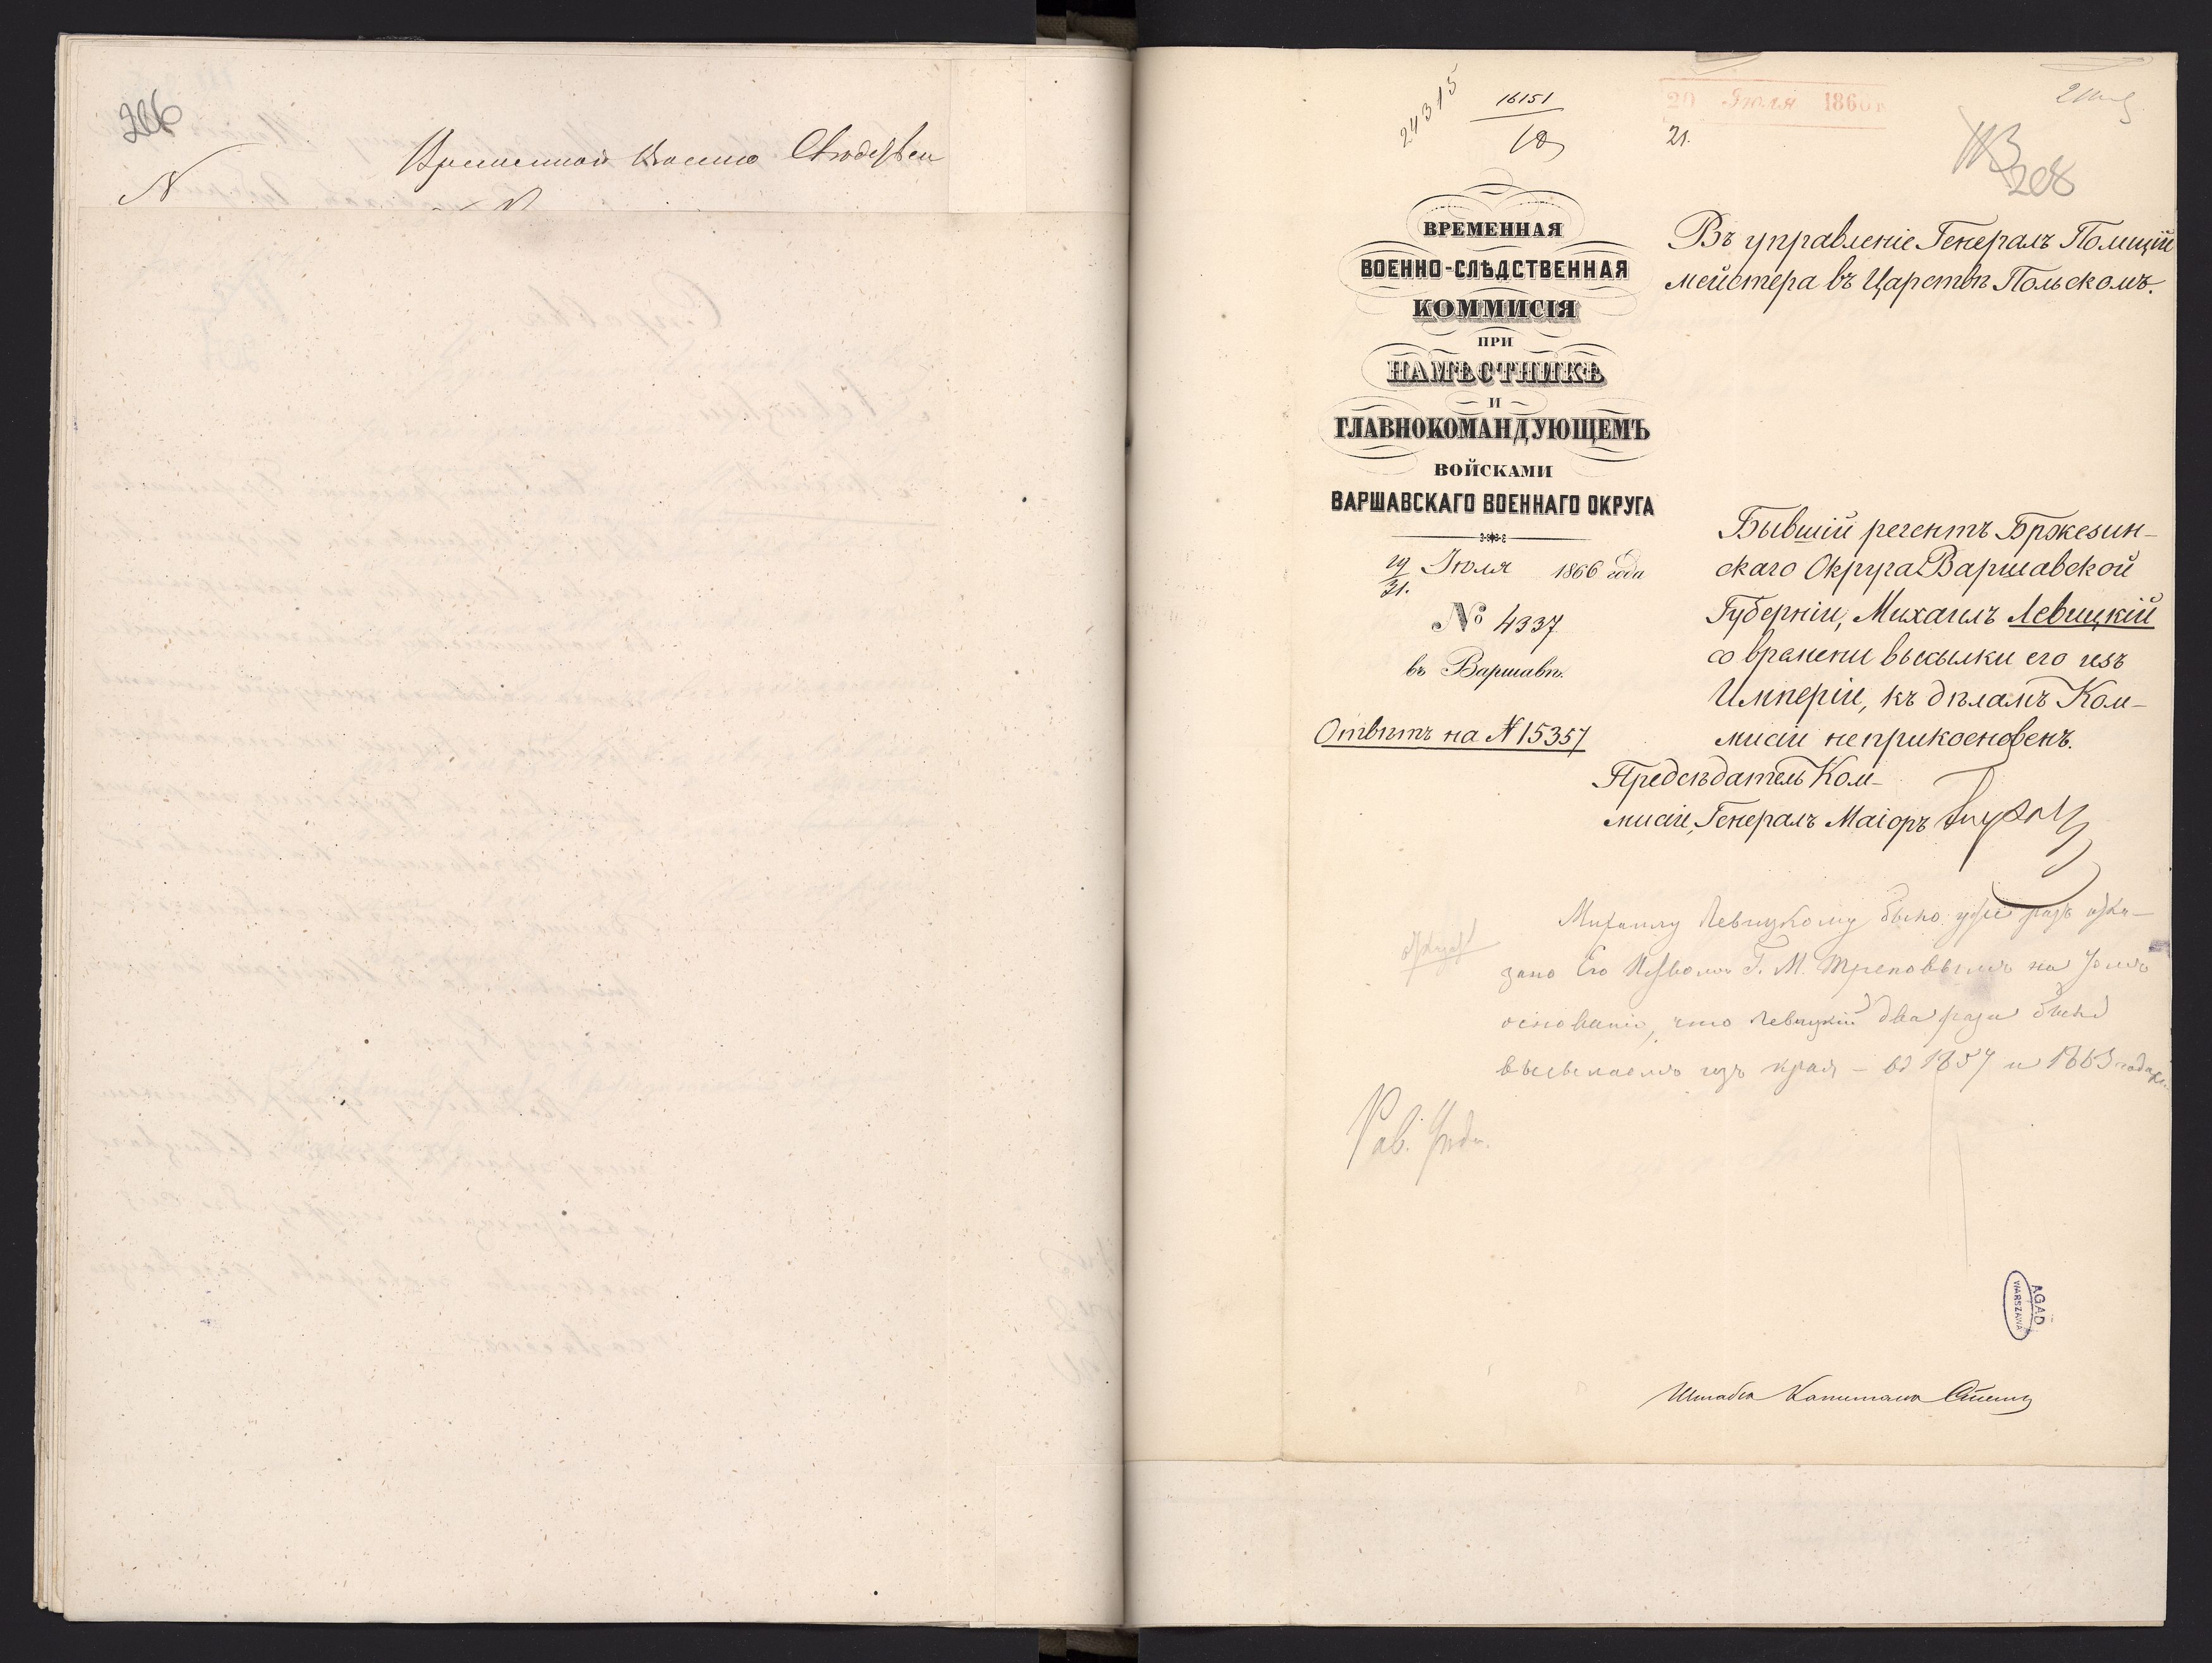 206
Временной Военно Следствен
№
24315
16151
20 Июля 1866 г
21.
208
ВРЕМЕННАЯ
ВОЕННО-СЛѢДСТВЕННАЯ
КОММИСІЯ
ПРИ
НАМѢСТНИКѢ
И
ГЛАВНОКОМАНДУЮЩЕМЪ
ВОЙСКАМИ
ВАРШАВСКАГО ВОЕННАГО ОКРУГА
19/31. Іюля 1866 года
№ 4337
въ Варшавѣ.
Отвѣтъ на № 15357
Въ управленіе Генералъ Полиціи
мейстера въ Царствѣ Польскомъ.
Бывшій регентъ Бржезин-
скаго Округа Варшавской
Губерніи, Михаилъ Левицкій
со времени высылки его изъ
Имперіи, къ дѣламъ Ком-
мисіи неприкосновенъ.
Предсѣдатель Ком-
мисіи, Генералъ Маіоръ
Михаилу Левицкому было уже разъ отка-
зано Его П. Г. М. Треповымъ на томъ
основаніи, что Левицкій два раза былъ
высылаемъ изъ края - въ 1857 и 1863 годахъ
AGAD
WARSZAWA
Штабсъ Капитанъ